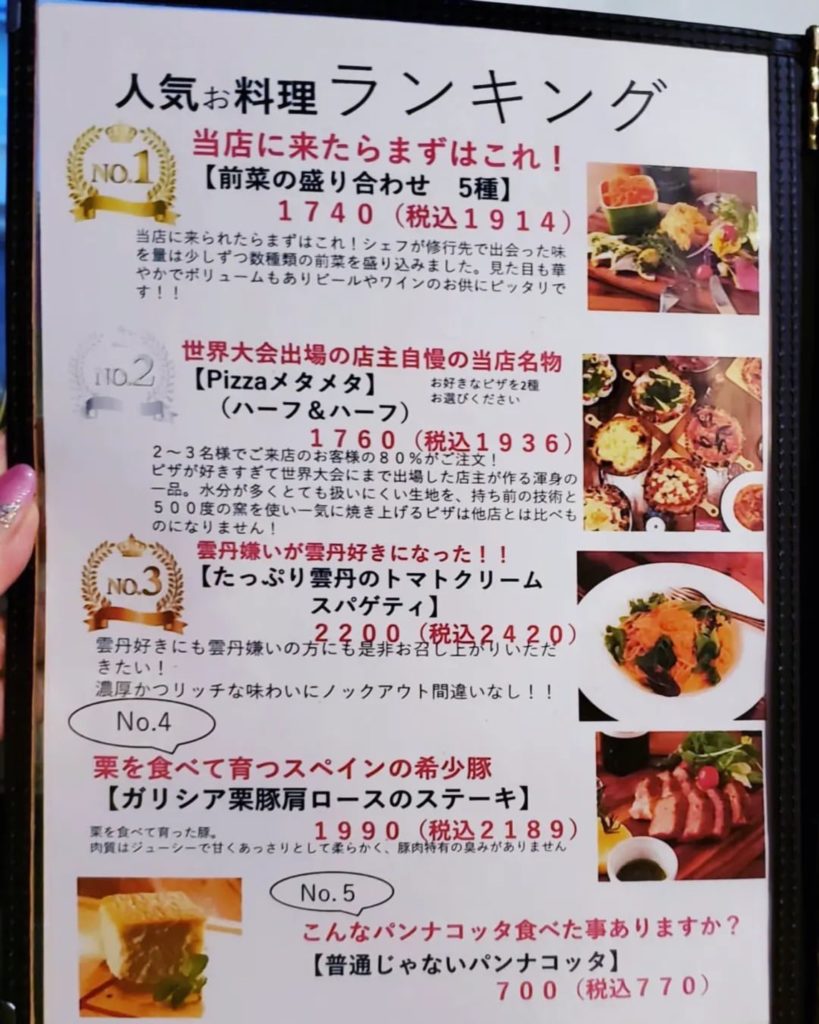 人気お料理ランキング
NO.1
当店に来たらまずはこれ！
【前菜の盛り合わせ　5種】
１７４０（税込１９１４）
当店に来られたらまずはこれ！シェフが修行先で出会った味
を量は少しずつ数種類の前菜を盛り込みました。見た目も華
やかでボリュームもありビールやワインのお供にピッタリで
す！！
NO.2
世界大会出場の店主自慢の当店名物
【Pizzaメタメタ】
（ハーフ＆ハーフ）
お好きなピザを2種
お選びください
１７６０（税込１９３６）
２～３名様でご来店のお客様の８０％がご注文！
ピザが好きすぎて世界大会にまで出場した店主が作る渾身の
一品。水分が多くとても扱いにくい生地を、持ち前の技術と
５００度の窯を使い一気に焼き上げるピザは他店とは比べも
のになりません！
NO.3
雲丹嫌いが雲丹好きになった！！
【たっぷり雲丹のトマトクリーム
スパゲティ】
２２００（税込２４２０）
雲丹好きにも雲丹嫌いの方にも是非お召し上がりいただ
きたい！
濃厚かつリッチな味わいにノックアウト間違いなし！！
No.4
栗を食べて育つスペインの希少豚
【ガリシア栗豚肩ロースのステーキ】
１９９０（税込２１８９）
栗を食べて育った豚。
肉質はジューシーで甘くあっさりとして柔らかく、豚肉特有の臭みがありません
No.5
こんなパンナコッタ食べた事ありますか？
【普通じゃないパンナコッタ】
７００（税込７７０）